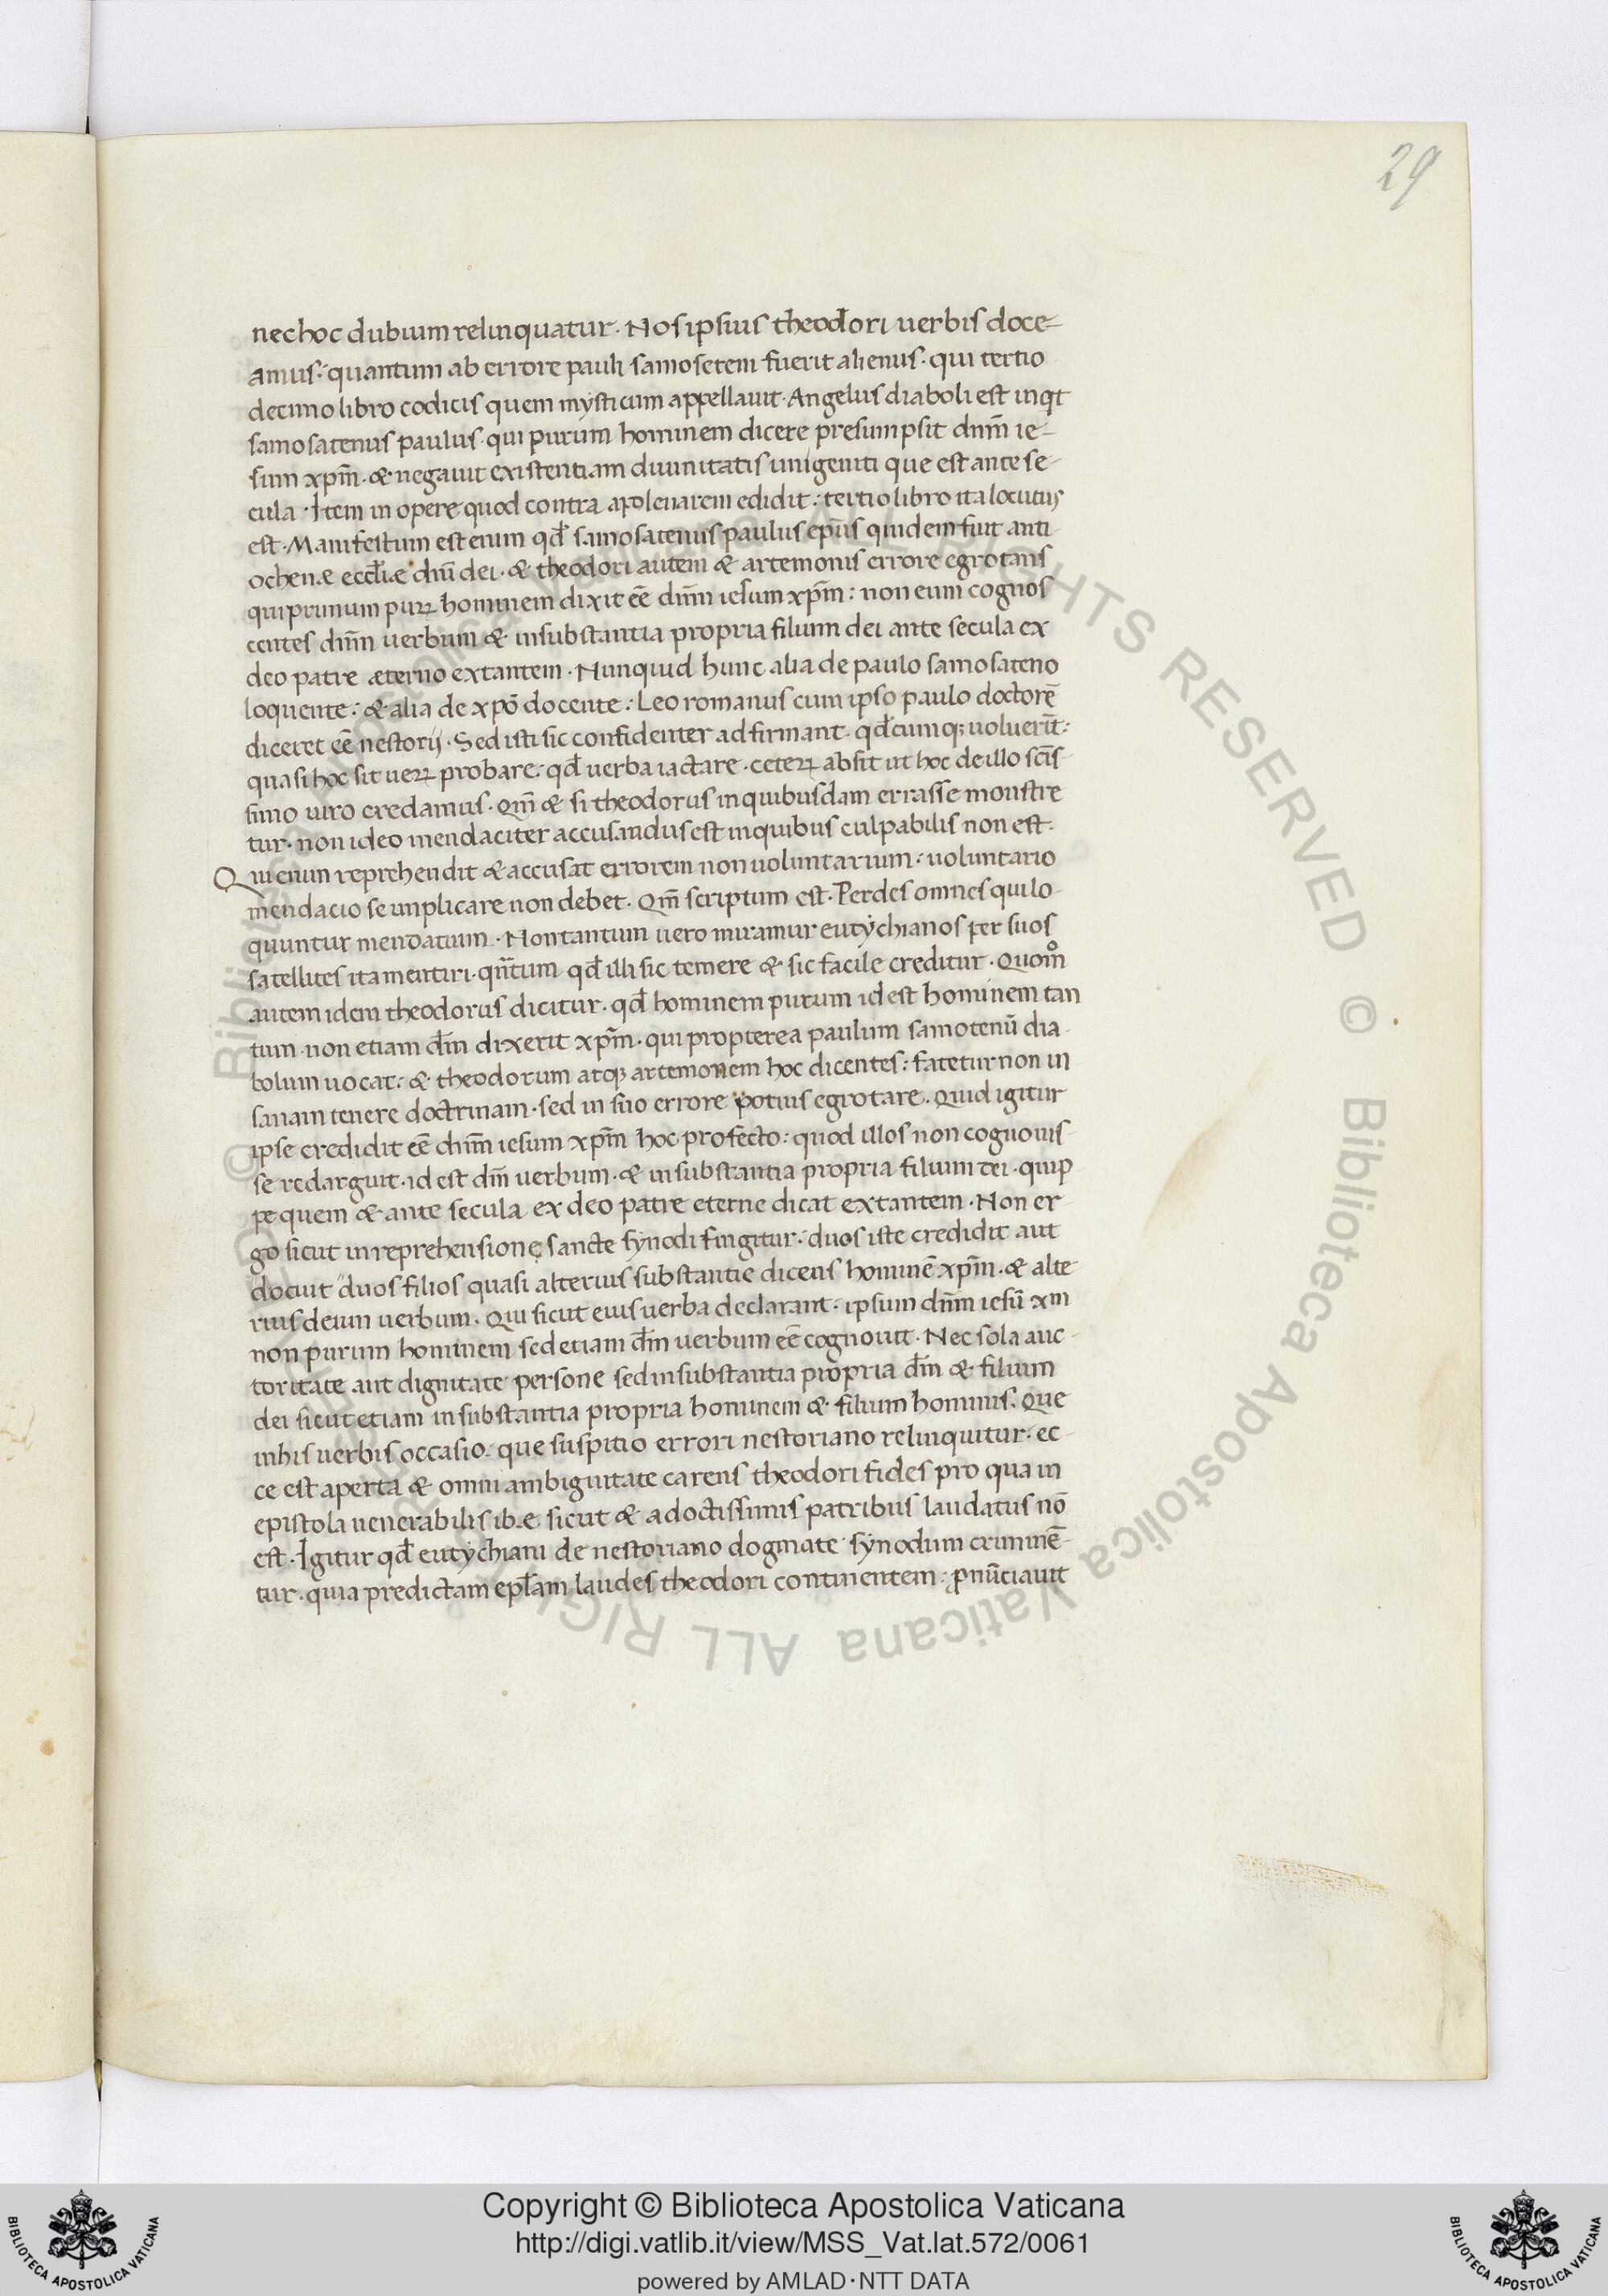 29
nec hoc dubium relinquatur. Nos ipsius theodori uerbis doce-
amus: quantum ab errore pauli samoseteni fuerit alienus. qui tertio
decimo libro codicis quem mysticum appellauit. Angelus diaboli est inqt
samosatenus paulus. qui purum hominem dicere presumpsit dnm̄ ie-
sum xpm̄. & negauit existentiam diuinitatis unigeniti que est ante se-
cula. Item in opere quod contra apolenarem edidit: tertio libro ita locutus
est. Manifestum est enim qđ samosatenus paulus ep̄us quidem fuit anti-
ochenæ eccłiæ dnī dei. & theodori autem & artemonis errore egrotans
qui primum puꝝ hominem dixit eē dnm̄ iesum xpm̄: non eum cognos
centes dnm̄ uerbum & in substantia propria filium dei ante secula ex
deo patre æterno extantem. Nunquid hunc alia de paulo samosateno
loquente: & alia de xpō docente: Leo romanus cum ipso paulo doctorē
diceret eē nestorij. Sed isti sic confidenter adfirmant. qđcumqꝫ uoluerīt:
quasi hoc sit ueꝝ probare: qđ uerba iactare. ceteꝝ absit ut hoc de illo scīs-
simo uiro credamus. Qm̄ & si theodorus in quibusdam errasse monstre
tur. non ideo mendaciter accusandus est in quibus culpabilis non est.
Qui enim reprehendit & accusat errorem non uoluntarium: uoluntario
mendacio se implicare non debet. Qm̄ scriptum est. Perdes omnes qui lo-
quuntur mendatium. Non tantum uero miramur eutychianos per suos
satellites ita mentiri. qn̄tum qđ illi sic temere & sic facile creditur. Quom̊
autem idem theodorus dicitur. qđ hominem purum id est hominem tan
tum non etiam dm̄ dixerit xpm̄. qui propterea paulum samotenū dia-
bolum uocat: & theodorum atqꝫ artemonem hoc dicentes: fatetur non in
sanam tenere doctrinam. sed in suo errore potius egrotare. Quid igitur
ipse credidit eē dnm̄ iesum xpm̄ hoc profecto: quod illos non cognouis-
se redarguit. id est dm̄ uerbum. & in substantia propria filium dei. quip
pe quem & ante secula ex deo patre eterne dicat extantem. Non er-
go sicut in reprehensione sancte synodi fingitur: duos iste credidit aut
docuit duos filios quasi alterius substantie dicens hominē xpm̄. & alte
rius deum uerbum. Qui sicut eius uerba declarant. ipsum dnm̄ iesū xm̄
non purum hominem sed etiam dm̄ uerbum eē cognouit. Nec sola auc-
toritate aut dignitate persone sed in substantia propria dm̄ & filium
dei sicut etiam in substantia propria hominem & filium hominis. Que
in his uerbis occasio. que suspitio errori nestoriano relinquitur. ec-
ce est aperta & omni ambiguitate carens theodori fides pro qua in
epistola uenerabilis ibe sicut & a doctissimis patribus laudatus nō
est. Igitur qđ eutychiani de nestoriano dogmate synodum criminē-
tur. quia predictam epłam laudes theodori continentem: ꝓnūciauit
© Biblioteca Apostolica Vaticana ALL RIGHTS RESERVED © Biblioteca Apostolica Vaticana ALL RIGHTS RESERVED
Copyright © Biblioteca Apostolica Vaticana
http://digi.vatlib.it/view/MSS_Vat.lat.572/0061
powered by AMLAD·NTT DATA
BIBLIOTECA APOSTOLICA VATICANA
BIBLIOTECA APOSTOLICA VATICANA